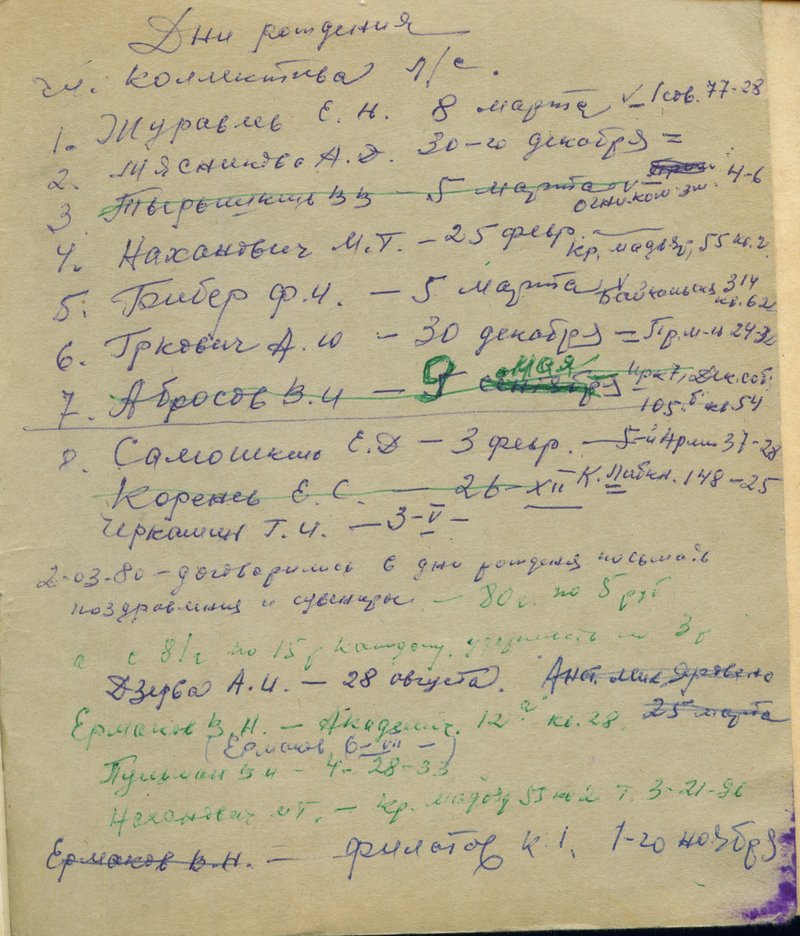 Дни рождения
чл. коллектива л/с.
1. Журавлев Е. Н. 8 марта √ – 1 сов. 77-28
2. Мясников А. Д. 30-го декабря =
3. Тырышкин В В – 5 марта √ = 4-6
Огнеком.
4. Наханович М. Т. – 25 февр. Кр. мадьяр, 55 кв. 2
5. Бибер Ф. И. – 5 марта √ Байкальская 314 кв. 62
6. Гркович А. Ю – 30 декабря =
7. Абросов В. И – 9 мая сентября – Ирк-7, Дек. соб. 105 б кв 54
8. Самошкин Е. Д – 3 февр. – 5-й Арм 37-28
Корень Е. С. – 26-XII = К. Либкн. 148-25
Черкашин Г. И. – 3-V –
2-03-80 – договорились в дни рождения посылать
поздравления и сувениры – 80 г. по 5 руб
а с 81 г по 15 р каждому, по 3 р
Дзерва А. И. – 28 августа.
Ермаков В. Н. – Академич. 12 а кв. 28. 25 марта
(Ермаков 6-VII –)
Пульман В И – 4-28-33
Наханович М Т. – Кр. мадьяр 55 кв 2 Т. 3-21-96
Ермаков В. Н. – Филатов К. 1-го ноября